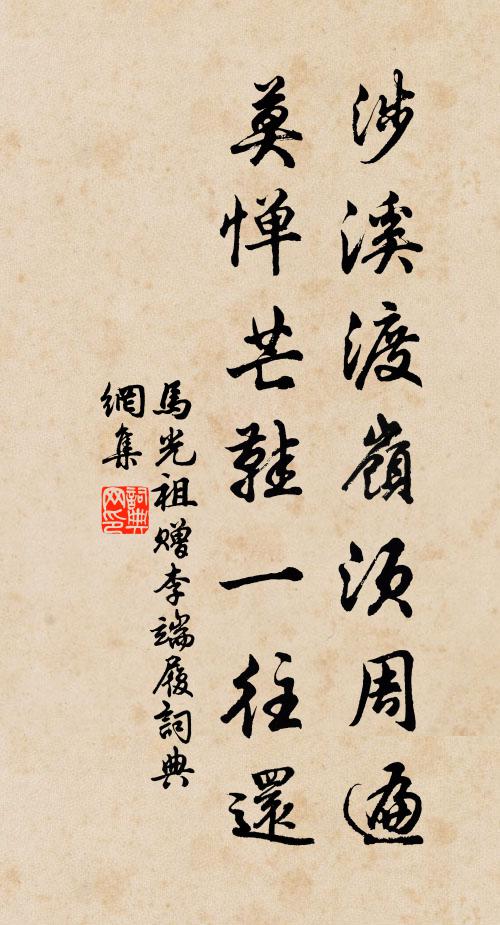 涉溪渡嶺須周遍
莫惮芒鞋一往還
馬光祖赠李端履詞典
網集
詞典网印